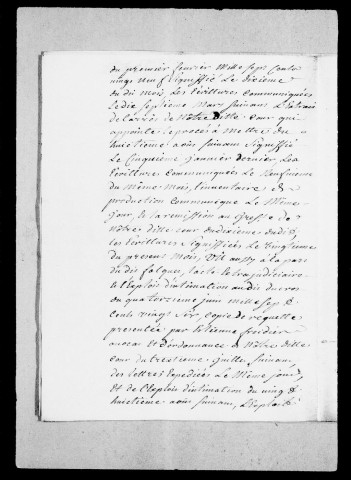 du premier fevrier Mille sept cents
vingt neuf signiffié Le dixieme
du dit mois, Les Ecrittures communiquées
Le dix septieme Mars suivant L'Extrait
de L'arrêt de Nôtre ditte Cour qui
appointe Le procés à Mettre du
huictieme aoüt suivant Signiffié
Le Cinquieme janvier dernier, Les
Ecritture communiquées Le Neufvieme
du même mois, L'inventaire &
production communiqué Le Même
jour, et La remission au Greffe de
Nôtre ditte cour du dixieme dudit
Les Ecrittures signiffiées Le vingtieme
du present Mois, Vû aussy à la part
du dit falques, L'acte Extrajudiciaire
et L'Exploit d'intimation au dit
du quatorzieme juin Mille sept
Cents vingt Six, copie de requette
presentée par Etienne
avocat et d'ordonnance de Nôtre ditte
cour du treizieme juillet suivant
des Lettres Expediées Le Même jour
et de L'Exploit d'intimation du vingt
huictieme aoüt suivant, L'Exploit